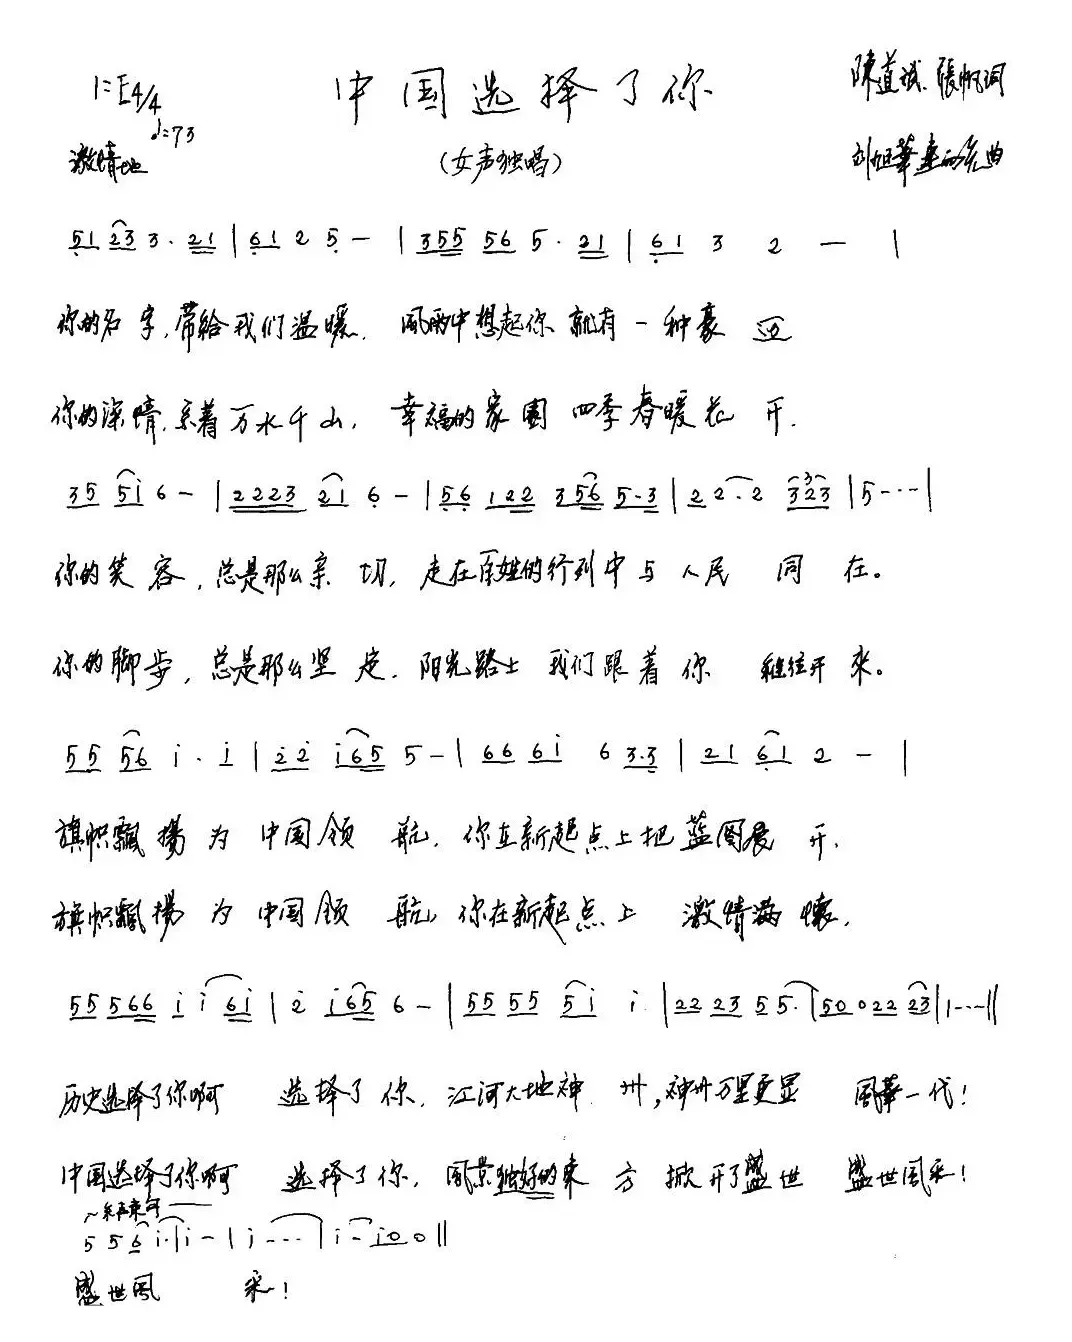 1=E4/4
♩=73
中国选择了你
陳道斌、張帆词
激情地
(女声独唱)
刘旭華 曲
51 23 3. 21 | 61 2 5 - | 355 56 5. 21 | 61 3 2 - |
你的名字,带给我们温暖. 風雨中想起你 就有一种豪迈
你的深情,系着万水千山, 幸福的家園 四季春暖花开.
35 5i 6 - | 2223 21 6 - | 56 122 356 5.3 | 2 2 . 2 323 | 5--- |
你的笑容,总是那么亲切, 走在百姓的行列中与人民 同在。
你的脚步,总是那么坚定. 阳光路上 我们跟着你 继往开來。
55 56 i . i | 2 2 i65 5 - | 66 6i 6 3.3 | 21 61 2 - |
旗帜飄揚为中国领航. 你在新起点上把蓝图展开.
旗帜飄揚为中国领航, 你在新起点上 激情满懷.
55 566 i i 6i | 2 i65 6 - | 55 55 5i i. | 22 23 5 5. | 50 0 22 23 | 1--- ||
历史选择了你啊 选择了你. 江河大地神州,神州万里更显 風華一代!
中国选择了你啊 选择了你, 風景独好的東方 掀开了盛世 盛世風采!
5 5 6 i. | i - | i --- | i - i 0 0 ||
盛世風采!